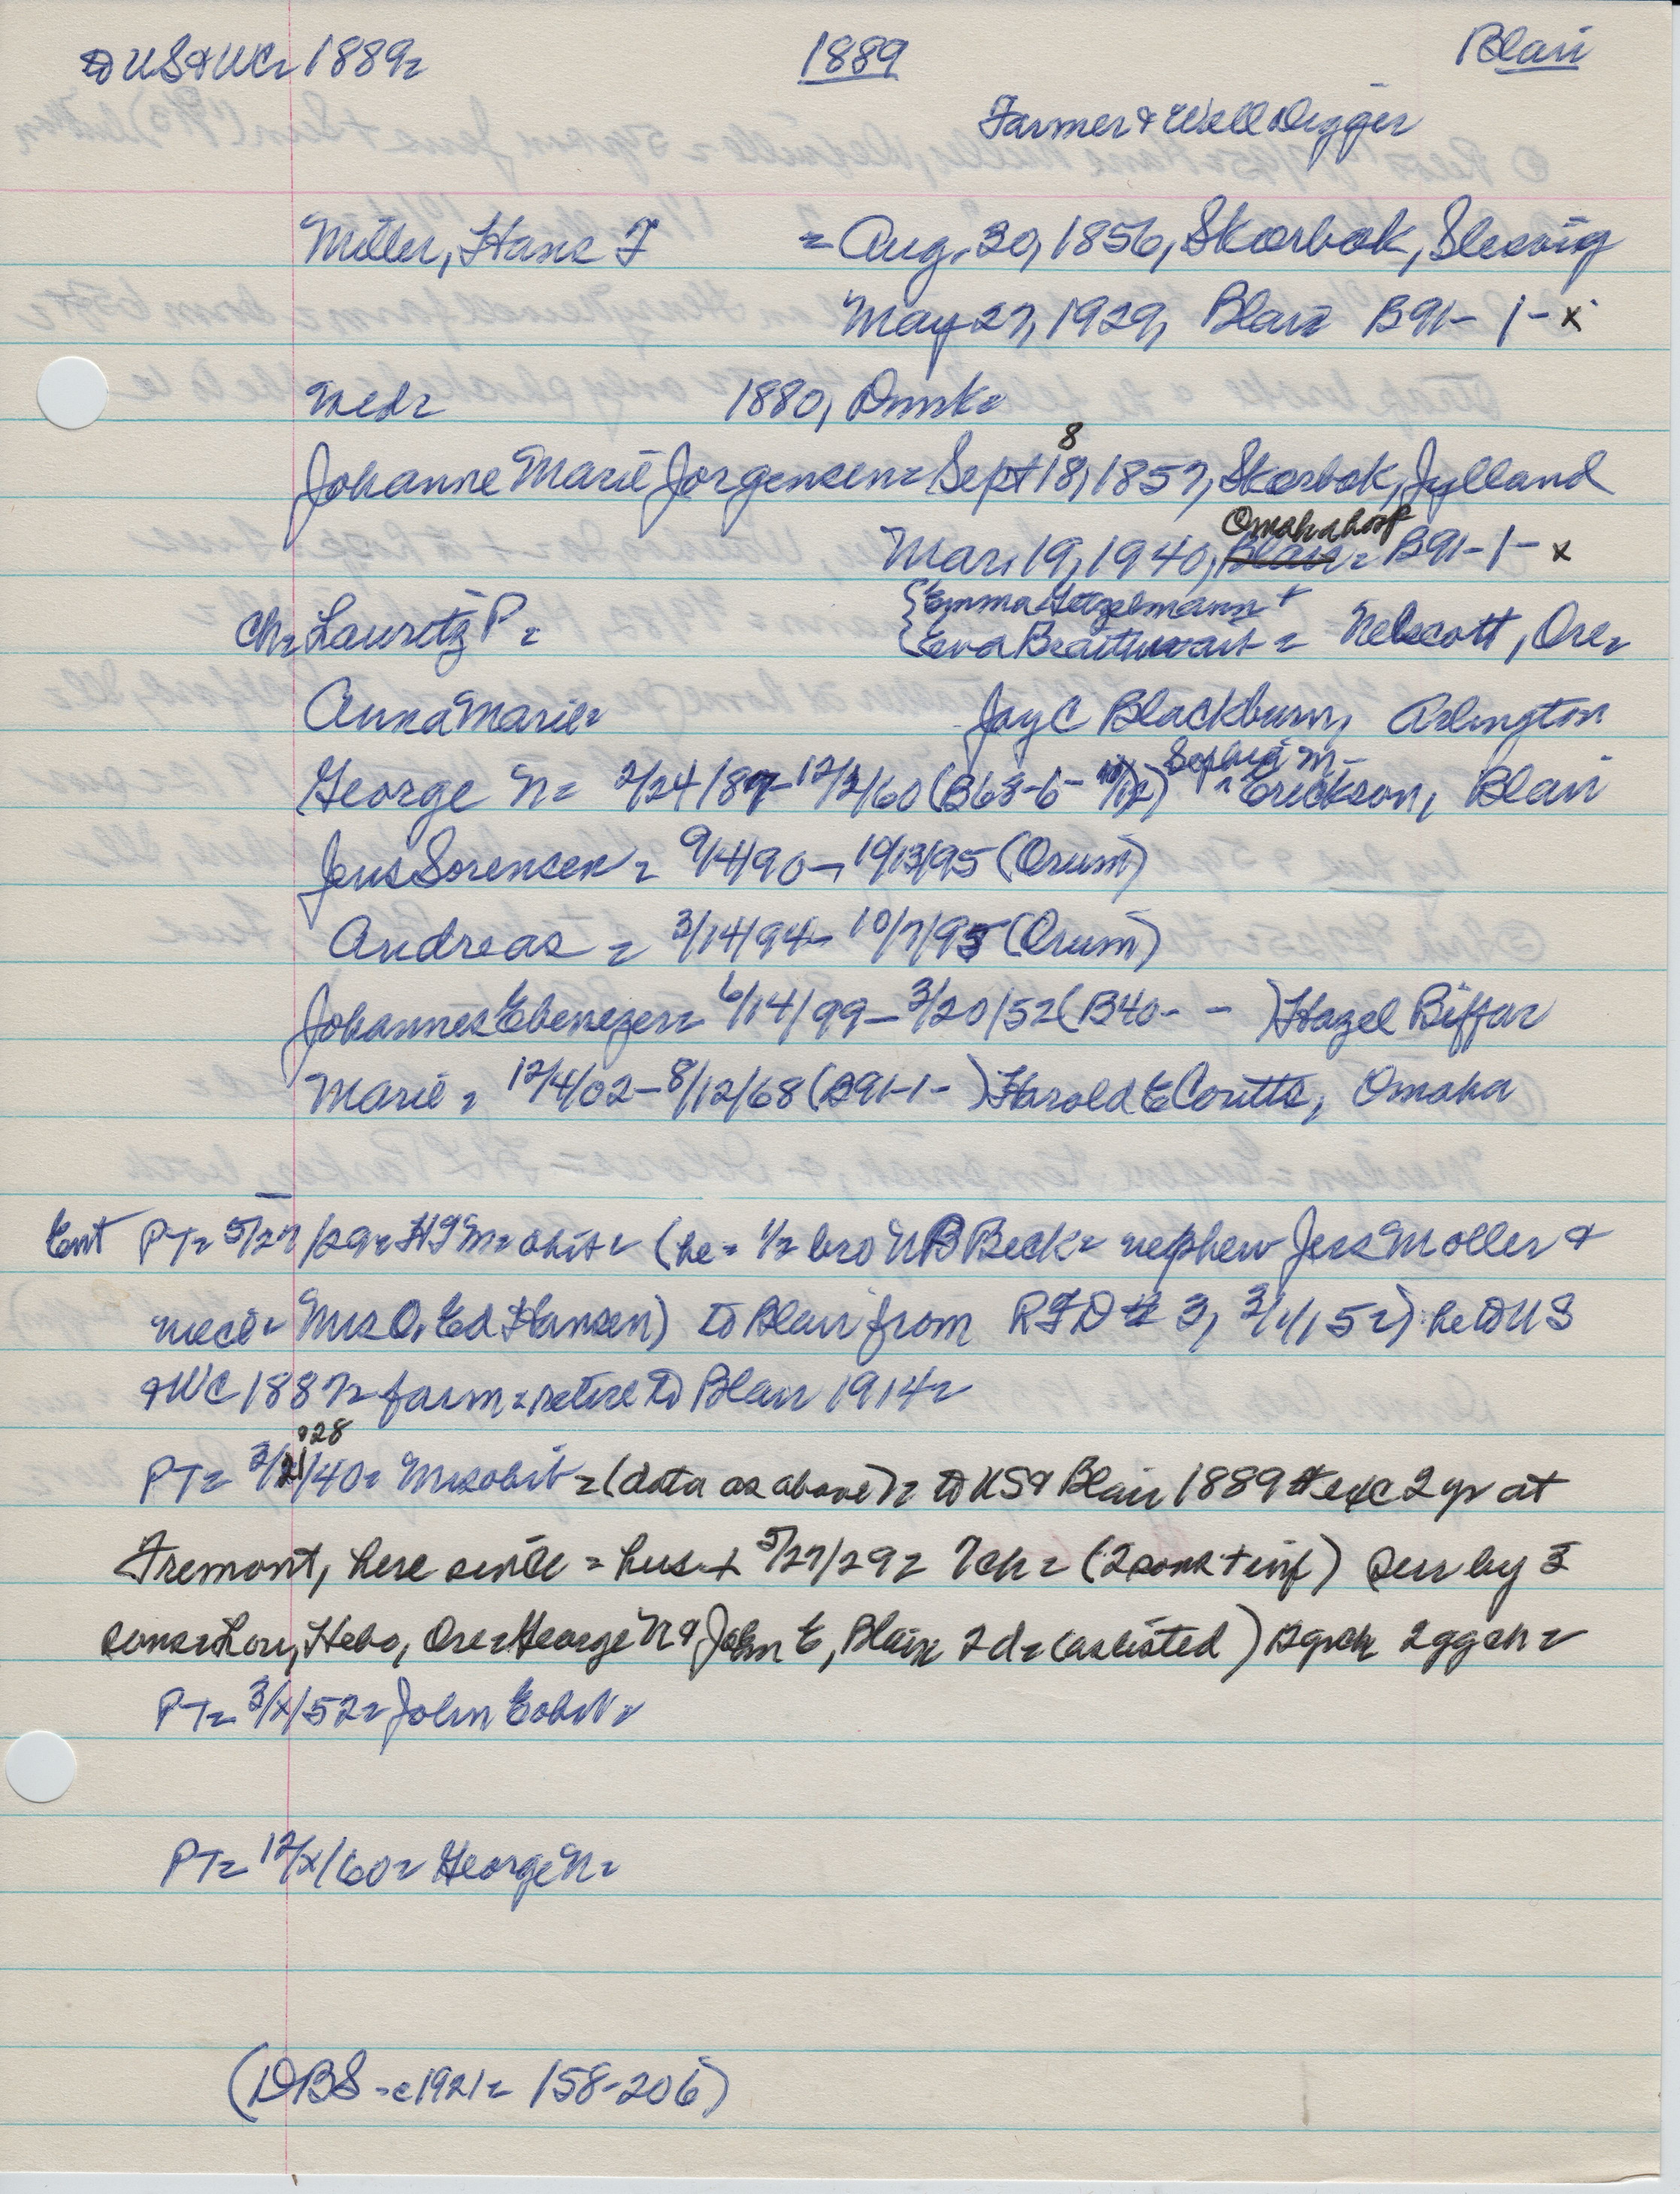 to US & WC= 1889= 1889 Blair
Farmer & Well Digger
Miller, Hans F = Aug. 30, 1856, Skærbæk, Slesvig
May 27, 1929, Blair B91-1-x
med= 1880, Dnmk=
Johanne Marie Jorgensen= Sept 18, 1857, Skærbæk, Jylland
8
Omaha hosp
Mar. 19, 1940, Blair= B91-1-x
{Emma +
Ch= Lauritz P= {Eva = Nelscott, Ore=
Anna Marie= Jay C Blackburn, Arlington
Sophia M-
George N= 2/24/87-12/2/60 (B68-6- ) ^Erickson, Blair
Jens Sorensen= 9/4/90- 10/13/95 (Orum)
Andreas= 3/14/94- 10/7/95 (Orum)
Johannes Ebenezer= 6/14/99-3/20/52 (B40- - ) Hazel Biffar
Marie= 12/4/02-8/12/68 (B91-1- ) Harold E Coutts, Omaha
Ent PT= 5/27/29= HFM= obit= (he= 1/2 bro NB Beck= nephew Jens Moller &
niece= Mrs O. Ed Hansen) to Blair from RFD # 3, he to US
& WC 1887= farm= retire to Blair 1914=
28
PT= 3/21/40= Mrs obit= (data as above)= to US & Blair 1889 exc 2 yr at
Fremont, here since= hus + 5/27/29= 7 ch= (2 sons + inf) surv by 3
sons= Lou, Hebo, Ore= George N & John E, Blair 2 d= (as listed) 12 gch 2 ggch=
PT= 3/x/52= John E obit=
PT= 12/x/60= George N=
(DBS-c1921= 158-206)